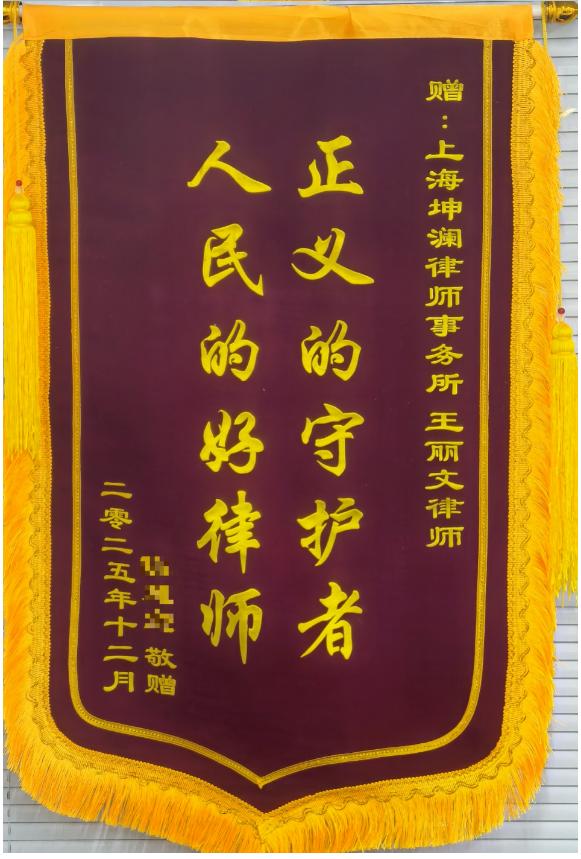 赠：上海坤澜律师事务所 王丽文律师
正义的守护者
人民的好律师
敬赠
二零二五年十二月